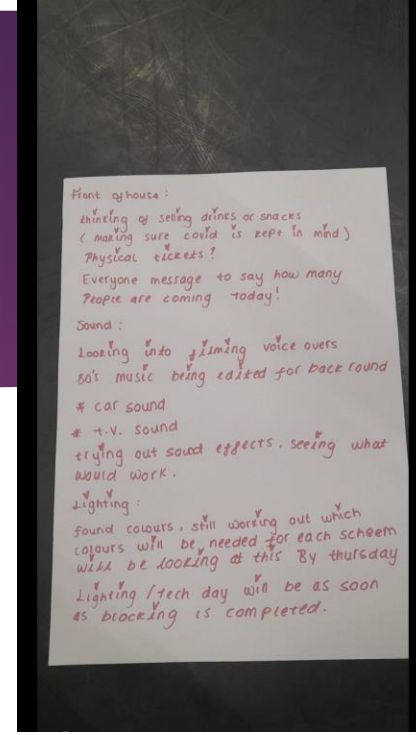 Front of house :
thinking of seling drincs or snacks
( making sure covid is kept in mind )
Physical tickets ?
Everyone message to say how many
People are coming today!
Sound :
Looking into filming voice overs
80's music being edited for back round
* car sound
* T.V. sound
trying out soud effects, seeing what
would work.
Lighting :
found colours, still working out which
colours will be needed for each scheem
will be looking at this By thursday
Lighting / tech day will be as soon
as blocking is completed.